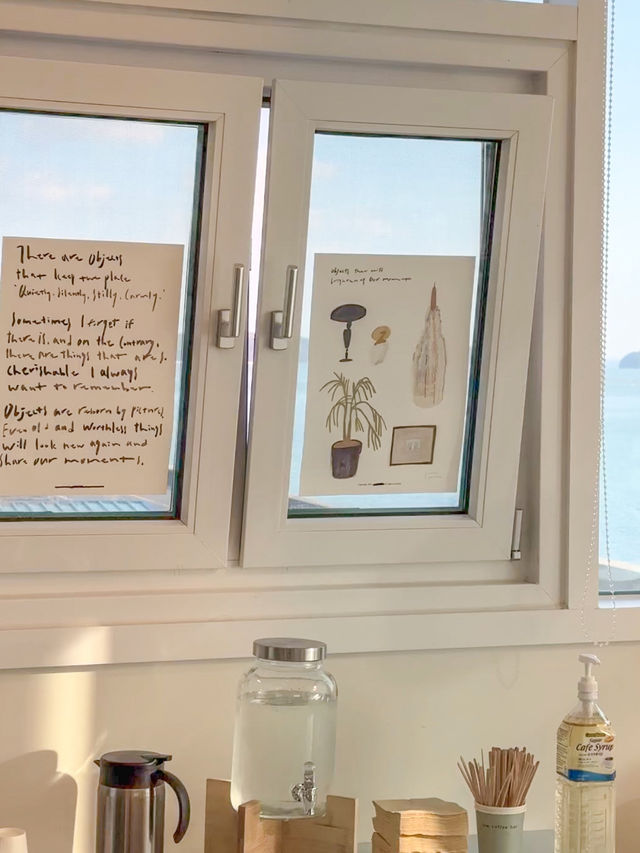 There are Objects
that keep the place
'Quietly. Silently. Stilly. Calmly.'
Sometimes I forget if
there is, and on the Contrary,
there are things that are
Cherishable I always
want to remember.
Objects are reborn by Picture
Even old and worthless things
will look new again and
Share our moments.
Objects that will
Our moments
Sugar
Cafe Syrup
coffee bar